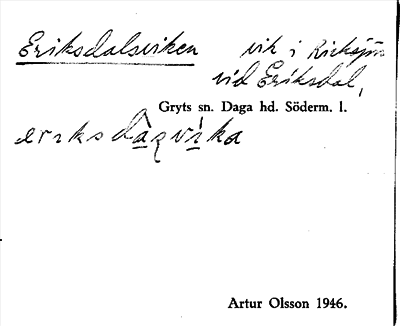 Eriksdalsviken vik i Kicksjön
vid Eriksdal,
Gryts sn. Daga hd. Söderm. l.
Artur Olsson 1946.